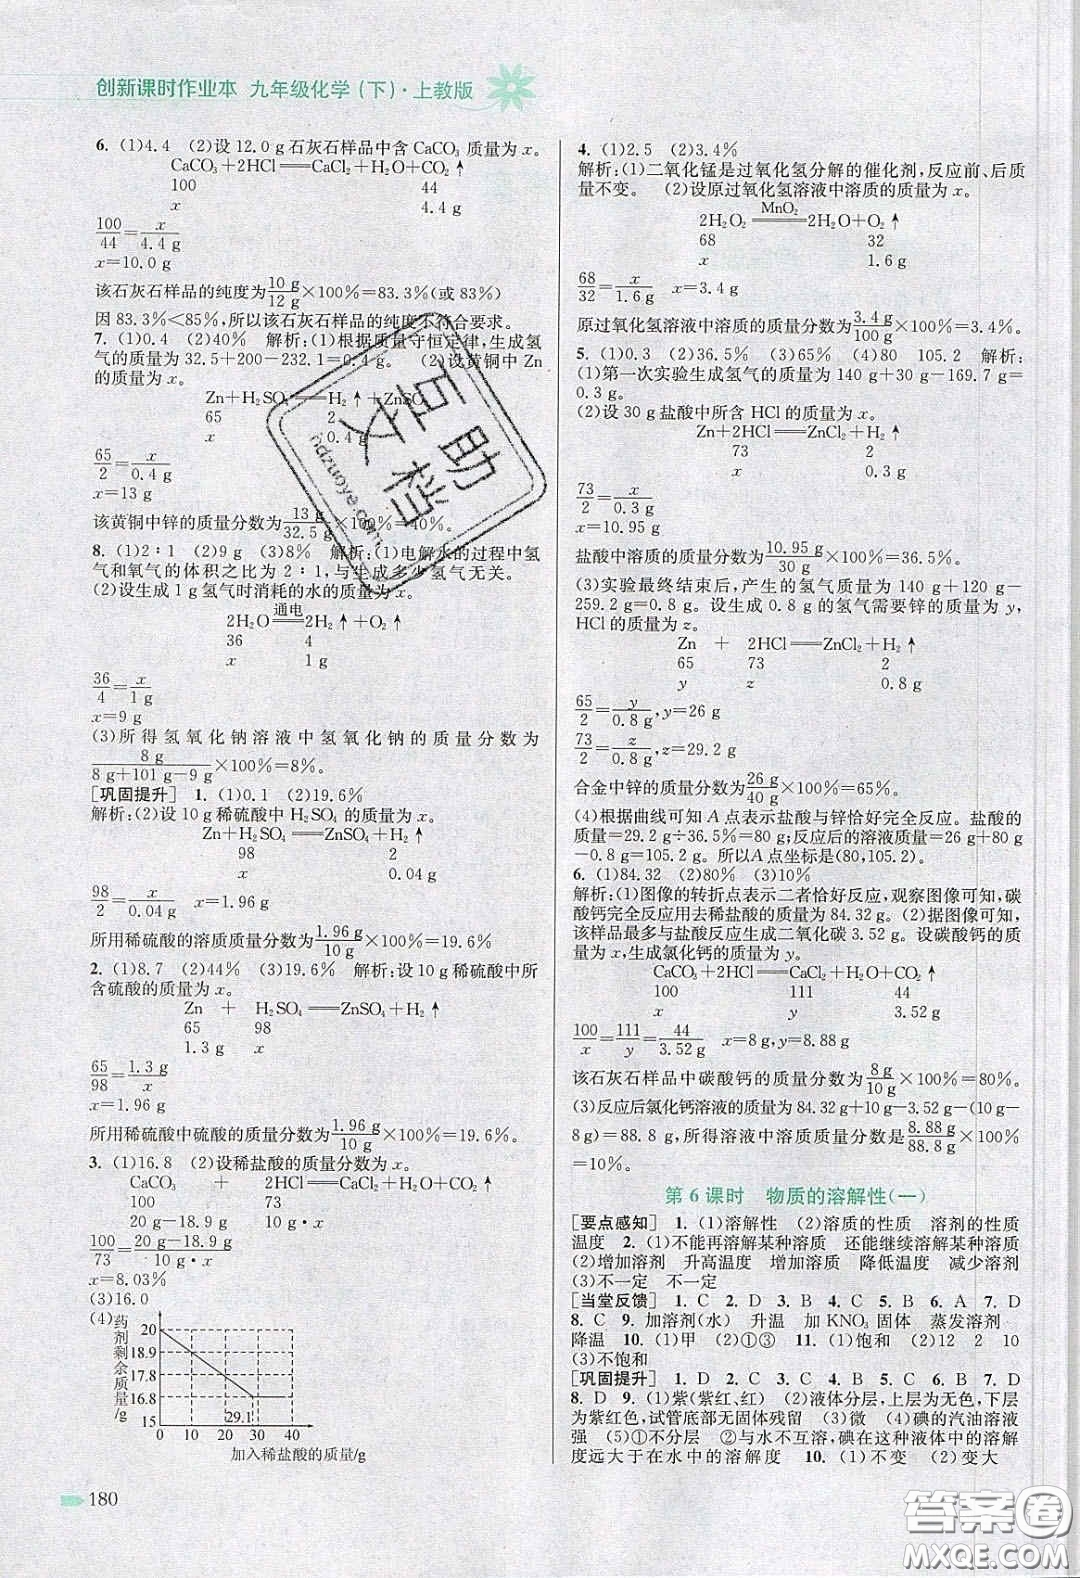 创新课时作业本 九年级化学(下)·上教版
6. (1)4.4 (2)设 12.0 g 石灰石样品中含 CaCO₃ 质量为 x。
CaCO₃+2HCl══CaCl₂+H₂O+CO₂↑
100 44
x 4.4 g
100/44=x/4.4 g
x=10.0 g
该石灰石样品的纯度为10 g/12 g×100%=83.3%(或 83%)
因 83.3%<85%,所以该石灰石样品的纯度不符合要求。
7. (1)0.4 (2)40% 解析:(1)根据质量守恒定律,生成氢
气的质量为 32.5+200-232.1=0.4 g。 (2)设黄铜中 Zn
的质量为 x。
Zn+H₂SO₄══H₂↑+ZnSO₄
65 2
x 0.4 g
65/2=x/0.4 g
x=13 g
该黄铜中锌的质量分数为13 g/32.5 g×100%=40%。
8. (1)2∶1 (2)9 g (3)8% 解析:(1)电解水的过程中氢
气和氧气的体积之比为 2∶1,与生成多少氢气无关。
(2)设生成 1 g 氢气时消耗的水的质量为 x。
通电
2H₂O══2H₂↑+O₂↑
36 4
x 1 g
36/4=x/1 g
x=9 g
(3)所得氢氧化钠溶液中氢氧化钠的质量分数为
8 g/8 g+101 g-9 g×100%=8%。
[巩固提升] 1. (1)0.1 (2)19.6%
解析:(2)设 10 g 稀硫酸中 H₂SO₄ 的质量为 x。
Zn+H₂SO₄══ZnSO₄+H₂↑
98 2
x 0.04 g
98/2=x/0.04 g x=1.96 g
所用稀硫酸的溶质质量分数为1.96 g/10 g×100%=19.6%
2. (1)8.7 (2)44% (3)19.6% 解析:设 10 g 稀硫酸中所
含硫酸的质量为 x。
Zn + H₂SO₄══ZnSO₄+H₂↑
65 98
1.3 g x
65/98=1.3 g/x
x=1.96 g
所用稀硫酸中硫酸的质量分数为1.96 g/10 g×100%=19.6%。
3. (1)16.8 (2)设稀盐酸的质量分数为 x。
CaCO₃ + 2HCl══CaCl₂+H₂O+CO₂↑
100 73
20 g-18.9 g 10 g·x
100/73=20 g-18.9 g/10 g·x
x=8.03%
(3)16.0
(4)
药剂剩余质量/g
20
18.9
17.8
16.8
15
0 10 20 29.1 30 40
加入稀盐酸的质量/g
180
4. (1)2.5 (2)3.4%
解析:(1)二氧化锰是过氧化氢分解的催化剂,反应前、后质
量不变。 (2)设原过氧化氢溶液中溶质的质量为 x。
MnO₂
2H₂O₂══2H₂O+O₂↑
68 32
x 1.6 g
68/32=x/1.6 g x=3.4 g
原过氧化氢溶液中溶质的质量分数为3.4 g/100 g×100%=3.4%。
5. (1)0.3 (2)36.5% (3)65% (4)80 105.2 解析:
(1)第一次实验生成氢气的质量为 140 g+30 g-169.7 g=
0.3 g。
(2)设 30 g 盐酸中所含 HCl 的质量为 x。
Zn+2HCl══ZnCl₂+H₂↑
73 2
x 0.3 g
73/2=x/0.3 g
x=10.95 g
盐酸中溶质的质量分数为10.95 g/30 g×100%=36.5%。
(3)实验最终结束后,产生的氢气质量为 140 g+120 g-
259.2 g=0.8 g。设生成 0.8 g 的氢气需要锌的质量为 y,
HCl 的质量为 z。
Zn + 2HCl══ZnCl₂+H₂↑
65 73 2
y z 0.8 g
65/2=y/0.8 g,y=26 g
73/2=z/0.8 g,z=29.2 g
合金中锌的质量分数为26 g/40 g×100%=65%。
(4)根据曲线可知 A 点表示盐酸与锌恰好完全反应。盐酸的
质量=29.2 g÷36.5%=80 g;反应后的溶液质量=26 g+80 g
-0.8 g=105.2 g。所以A点坐标是(80,105.2)。
6. (1)84.32 (2)80% (3)10%
解析:(1)图像的转折点表示二者恰好反应,观察图像可知,碳
酸钙完全反应用去稀盐酸的质量为 84.32 g。(2)据图像可知,
该样品最多与盐酸反应生成二氧化碳 3.52 g。设碳酸钙的质
量为 x,生成氯化钙的质量为 y。
CaCO₃+2HCl══CaCl₂+H₂O+CO₂↑
100 111 44
x y 3.52 g
100/x=111/y=44/3.52 g x=8 g,y=8.88 g
该石灰石样品中碳酸钙的质量分数为8 g/10 g×100%=80%。
(3)反应后氯化钙溶液的质量为 84.32 g+10 g-3.52 g-(10 g-
8 g)=88.8 g,所得溶液中溶质质量分数是8.88 g/88.8 g×100%
=10%。
第 6 课时 物质的溶解性(一)
[要点感知] 1. (1)溶解性 (2)溶质的性质 溶剂的性质
温度 2. (1)不能再溶解某种溶质 还能继续溶解某种溶质
(2)增加溶剂 升高温度 增加溶质 降低温度 减少溶剂
(3)不一定 不一定
[当堂反馈] 1. C 2. D 3. B 4. A 5. C 6. A 7. D
8. C 9. 加溶剂(水) 升温 加 KNO₃ 固体 蒸发溶剂
降温 10. (1)甲 (2)①③ 11. (1)饱和 (2)12 2 10
(3)不饱和
[巩固提升] 1. D 2. C 3. C 4. C 5. C 6. D 7. D
8. D 9. (1)紫(紫红、红) (2)液体分层,上层为无色,下层
为紫红色,试管底部无固体残留 (3)微 (4)碘的汽油溶液
强 (5)①不分层 ②与水不互溶,碘在这种液体中的溶解
度远大于在水中的溶解度 10. (1)不变 (2)变大
互助文档
ndzuoye.com
答案圈
MXQE.COM